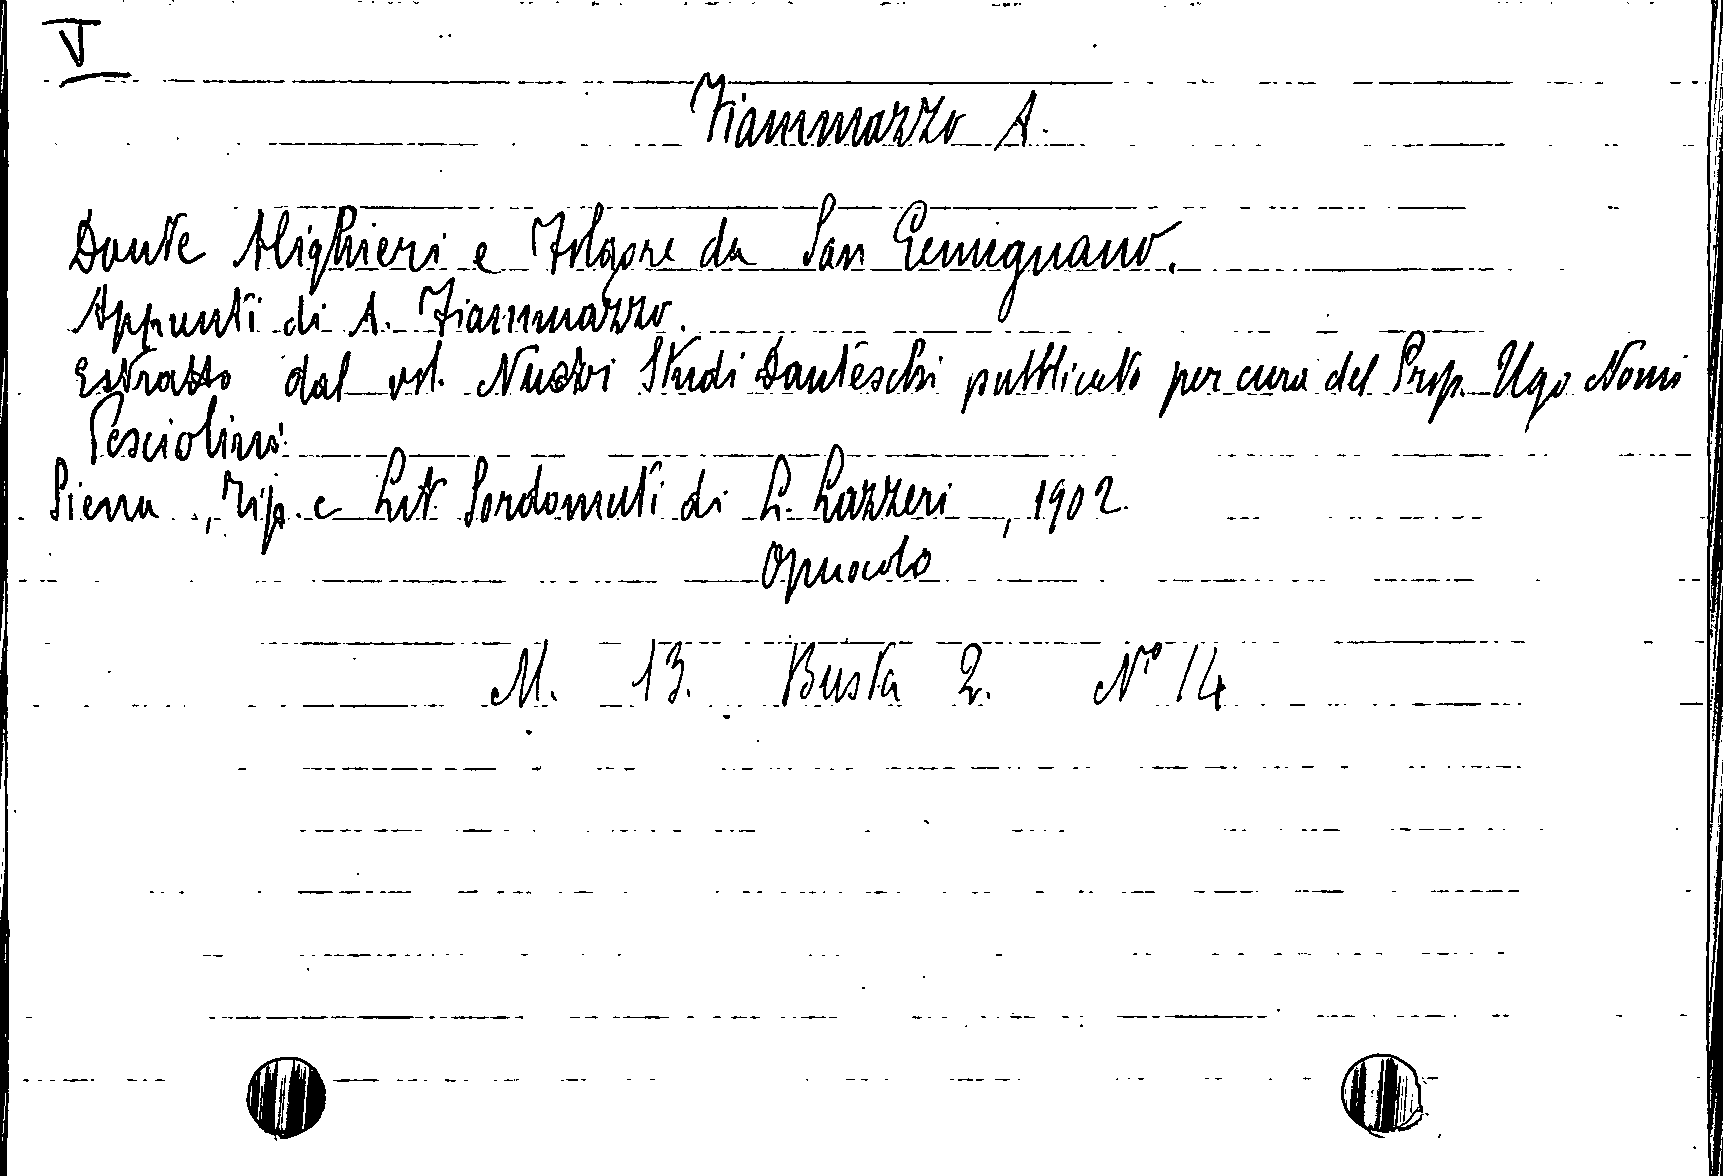 V
Fiammazzo A.
Dante Alighieri e Folgore da San Gemignano.
Appunti di A. Fiammazzo.
Estratto dal vol. Nuovi Studi Danteschi pubblicato per cura del Prop. Ugo Nomi
Pesciolini.
Siena, Tip. e Lit. Sordomuti di L. Lazzeri, 1902.
Opuscolo
M. 13. Busta 2. No 14